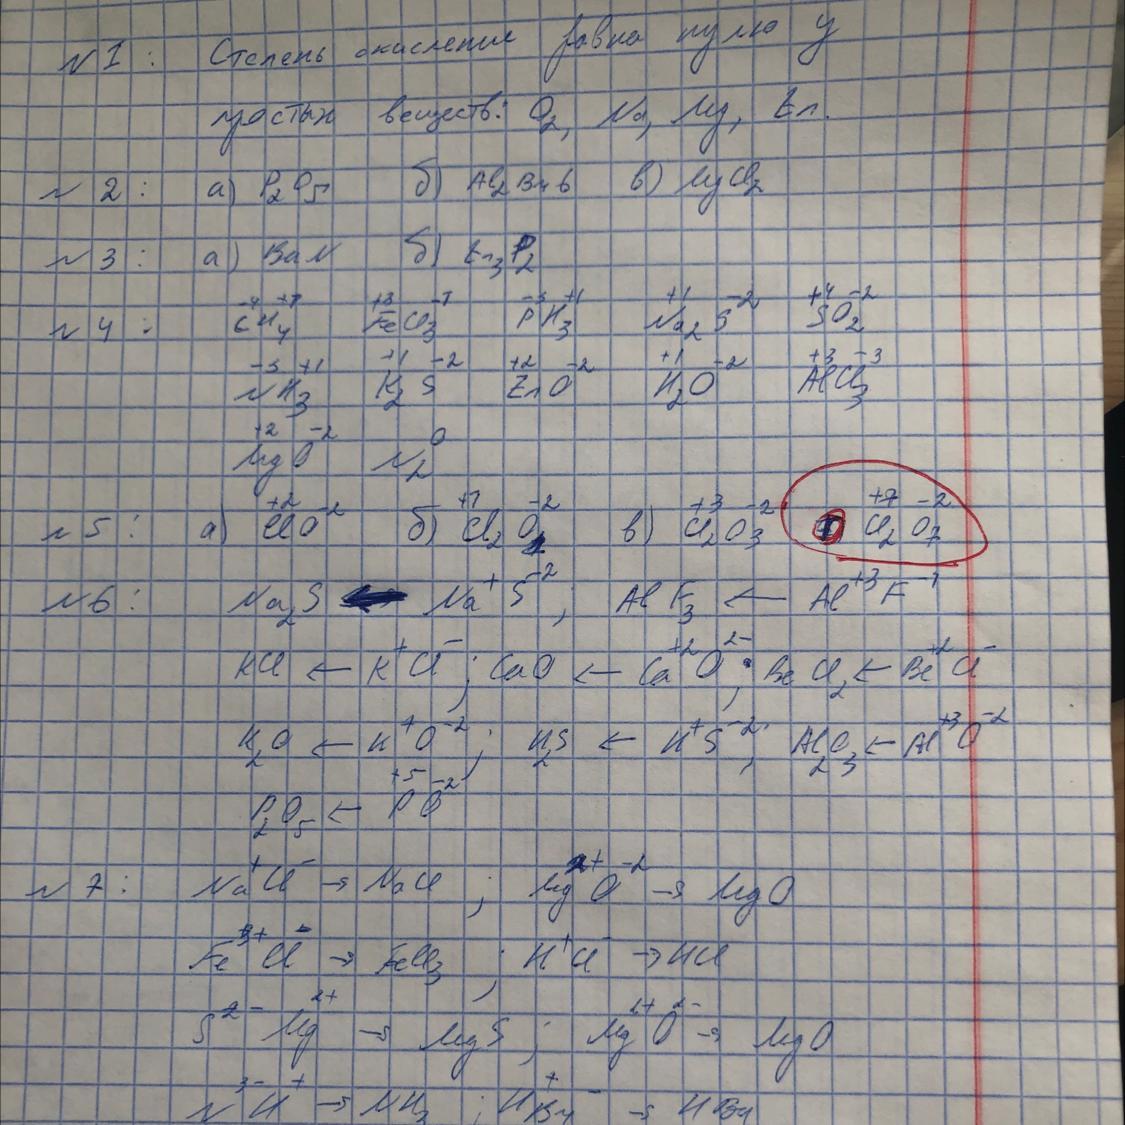 N 1 : Степень окисление равна нулю у
простых веществ: O₂, Na, Mg, Zn.
N 2 : а) P₂O₅ б) Al₂Br6 в) MgCl₂
N 3 : а) BaN б) Zn₃P₂
N 4 : C⁻⁴H₄⁺¹ Fe⁺³Cl₃⁻¹ P⁻³H₃⁺¹ Na₂⁺¹S⁻² S⁺⁴O₂⁻²
N⁻³H₃⁺¹ K₂⁺¹S⁻² Zn⁺²O⁻² H₂⁺¹O⁻² Al⁺³Cl₃⁻³
Mg⁺²O⁻² N₂⁰
N 5 : а) Cl⁺²O⁻² б) Cl₂⁺¹O⁻² в) Cl₂⁺³O₃⁻² Cl₂⁺⁷O₇⁻²
N 6 : Na₂S ← Na⁺S⁻² ; AlF₃ ← Al⁺³F⁻¹
KCl ← K⁺Cl⁻ ; CaO ← Ca⁺²O²⁻ ; BeCl₂ ← Be⁺²Cl⁻
H₂O ← H⁺O⁻² ; H₂S ← H⁺S⁻² ; Al₂O₃ ← Al⁺³O⁻²
P₂O₅ ← P⁺⁵O⁻²
N 7 : Na⁺Cl⁻ → NaCl ; Mg²⁺O⁻² → MgO
Fe³⁺Cl⁻ → FeCl₃ ; H⁺Cl⁻ → HCl
S²⁻Mg²⁺ → MgS ; Mg²⁺O²⁻ → MgO
N³⁻H⁺ → NH₃ ; H⁺Br⁻ → HBr